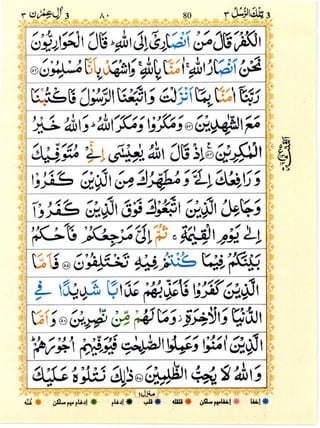 تِلْكَ الرُّسُلُ ٣ 80 ٨٠ اٰلِ عِمْرٰن ٣
الْكُفْرَ قَالَ مَنْ اَنْصَارِيْٓ اِلَى اللّٰهِ ؕ قَالَ الْحَوَارِيُّوْنَ
نَحْنُ اَنْصَارُ اللّٰهِ ۚ اٰمَنَّا بِاللّٰهِ ۚ وَاشْهَدْ بِاَنَّا مُسْلِمُوْنَ ﴿۵۲﴾
رَبَّنَاۤ اٰمَنَّا بِمَاۤ اَنْزَلْتَ وَاتَّبَعْنَا الرَّسُوْلَ فَاكْتُبْنَا
مَعَ الشّٰهِدِيْنَ ﴿۵۳﴾ وَمَكَرُوْا وَمَكَرَ اللّٰهُ ؕ وَاللّٰهُ خَيْرُ
الْمٰكِرِيْنَ ﴿۵۴﴾ اِذْ قَالَ اللّٰهُ يٰعِيْسٰۤى اِنِّيْ مُتَوَفِّيْكَ
وَرَافِعُكَ اِلَيَّ وَمُطَهِّرُكَ مِنَ الَّذِيْنَ كَفَرُوْا
وَجَاعِلُ الَّذِيْنَ اتَّبَعُوْكَ فَوْقَ الَّذِيْنَ كَفَرُوْۤا
اِلٰى يَوْمِ الْقِيٰمَةِ ۚ ثُمَّ اِلَيَّ مَرْجِعُكُمْ فَاَحْكُمُ
بَيْنَكُمْ فِيْمَا كُنْتُمْ فِيْهِ تَخْتَلِفُوْنَ ﴿۵۵﴾ فَاَمَّا
الَّذِيْنَ كَفَرُوْا فَاُعَذِّبُهُمْ عَذَابًا شَدِيْدًا فِي
الدُّنْيَا وَالْاٰخِرَةِ ؗ وَمَا لَهُمْ مِّنْ نّٰصِرِيْنَ ﴿۵۶﴾ وَاَمَّا
الَّذِيْنَ اٰمَنُوْا وَعَمِلُوا الصّٰلِحٰتِ فَيُوَفِّيْهِمْ اُجُوْرَهُمْ ؕ
وَاللّٰهُ لَا يُحِبُّ الظّٰلِمِيْنَ ﴿۵۷﴾ ذٰلِكَ نَتْلُوْهُ عَلَيْكَ
منزل ١
اخفا اخفا میم ساکن قلقله قلب ادغام ادغام میم ساکن غنّه